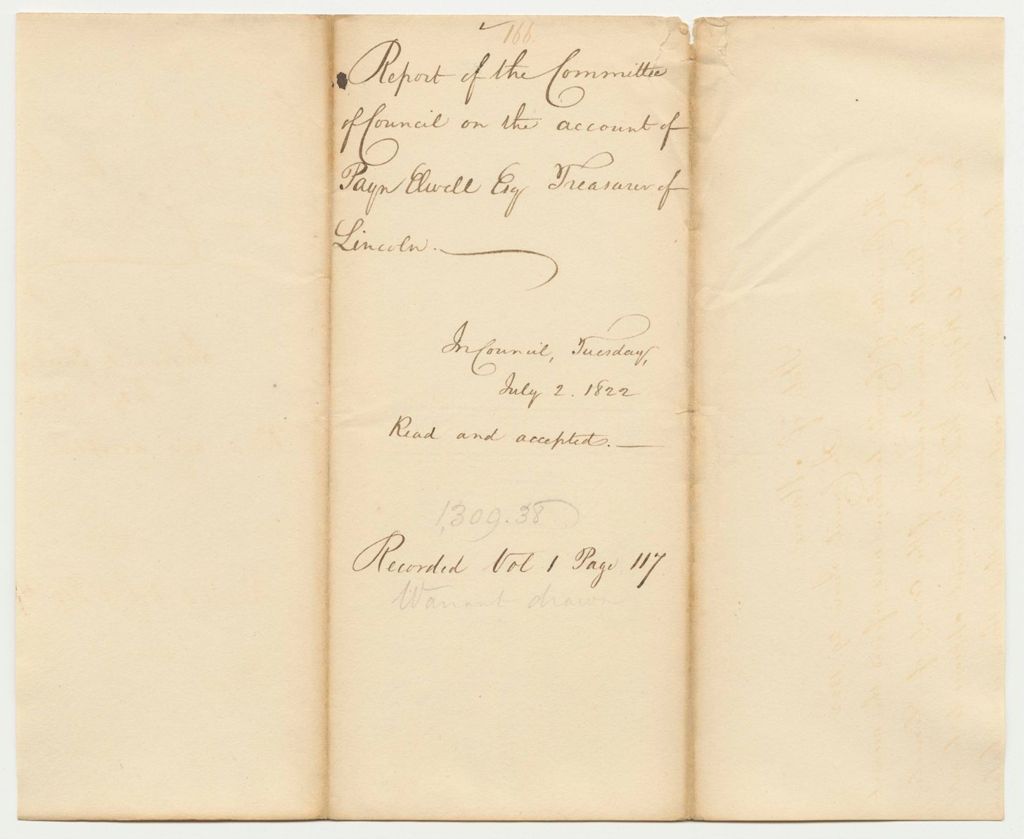 166
Report of the Committee
of Council on the account of
Payn Elwell Esq Treasurer of
Lincoln.
In Council, Tuesday,
July 2. 1822
Read and accepted.
1309.38
Recorded Vol 1 Page 117
Warrant drawn